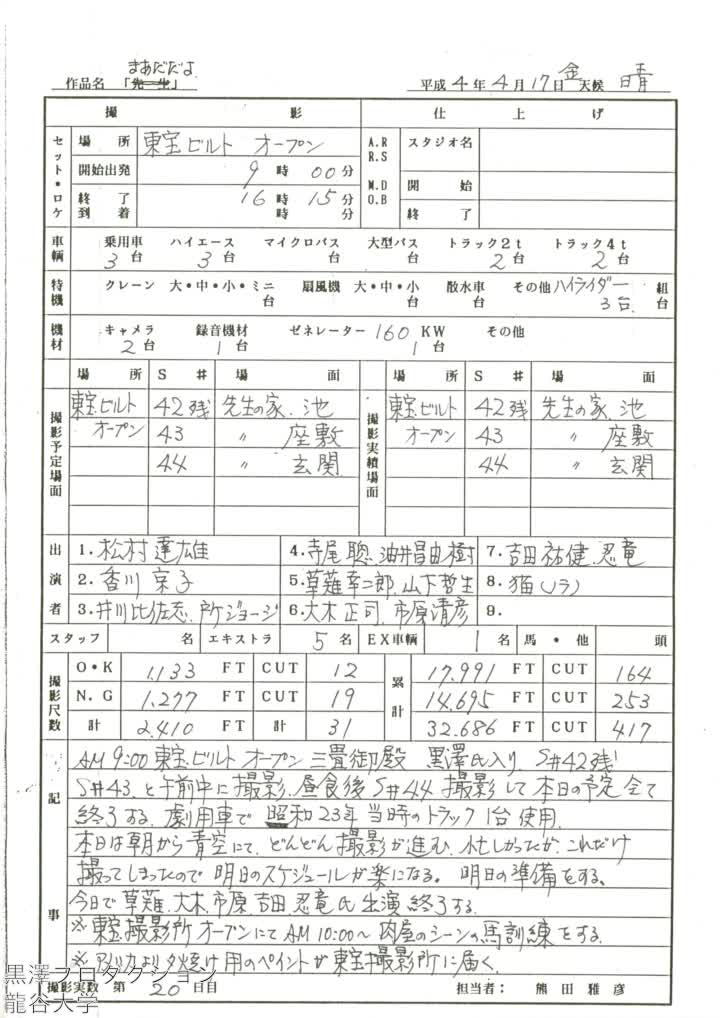 まあだだよ
作品名 「先生」 平成4年4月17日金天候 晴
撮影 仕上げ
セット・ロケ 場所 東宝ビルト オープン A.R R.S スタジオ名
開始出発 9時00分 M.D O.B 開始
終了 16時15分 終了
到着 時 分
車輌 乗用車 ハイエース マイクロバス 大型バス トラック2t トラック4t
3台 3台 台 台 2台 2台
特機 クレーン 大・中・小・ミニ 扇風機 大・中・小 散水車 その他 ハイライダー 組
台 台 台 3台 台
機材 キャメラ 録音機材 ゼネレーター 160KW その他
2台 1台 1台
場所 S# 場面 場所 S# 場面
撮影予定場面 東宝ビルト 42残 先生の家、池 撮影実績場面 東宝ビルト 42残 先生の家、池
オープン 43 〃 座敷 オープン 43 〃 座敷
44 〃 玄関 44 〃 玄関
出演者 1.松村達雄 4.寺尾聰、油井昌由樹 7.吉田祐健、忍竜
2.香川京子 5.草薙幸二郎、山下哲生 8.猫(ノラ)
3.井川比佐志、所ジョージ 6.大木正司、市原清彦 9.
スタッフ 名 エキストラ 5名 EX車輌 1名 馬・他 頭
撮影尺数 O・K 1.133 FT CUT 12 累計 17.991 FT CUT 164
N.G 1.277 FT CUT 19 14.695 FT CUT 253
計 2.410 FT 計 31 32.686 FT CUT 417
記事 AM9:00東宝ビルト オープン 三畳御殿 黒澤氏入り、S#42残
S#43、と午前中に撮影、昼食後S#44撮影して本日の予定全て
終了する。劇用車で昭和23年当時のトラック1台使用、
本日は朝から青空にて、どんどん撮影が進む、忙しかったが、これだけ
撮ってしまったので明日のスケジュールが楽になる。明日の準備をする。
今日で草薙、大木、市原、吉田、忍竜氏出演終了する。
※東宝撮影所オープンにてAM10:00〜肉屋のシーンの馬訓練をする。
※アメリカより夕焼け用のペイントが東宝撮影所に届く。
撮影実数 第20日目 担当者: 熊田雅彦
黒澤プロダクション
龍谷大学